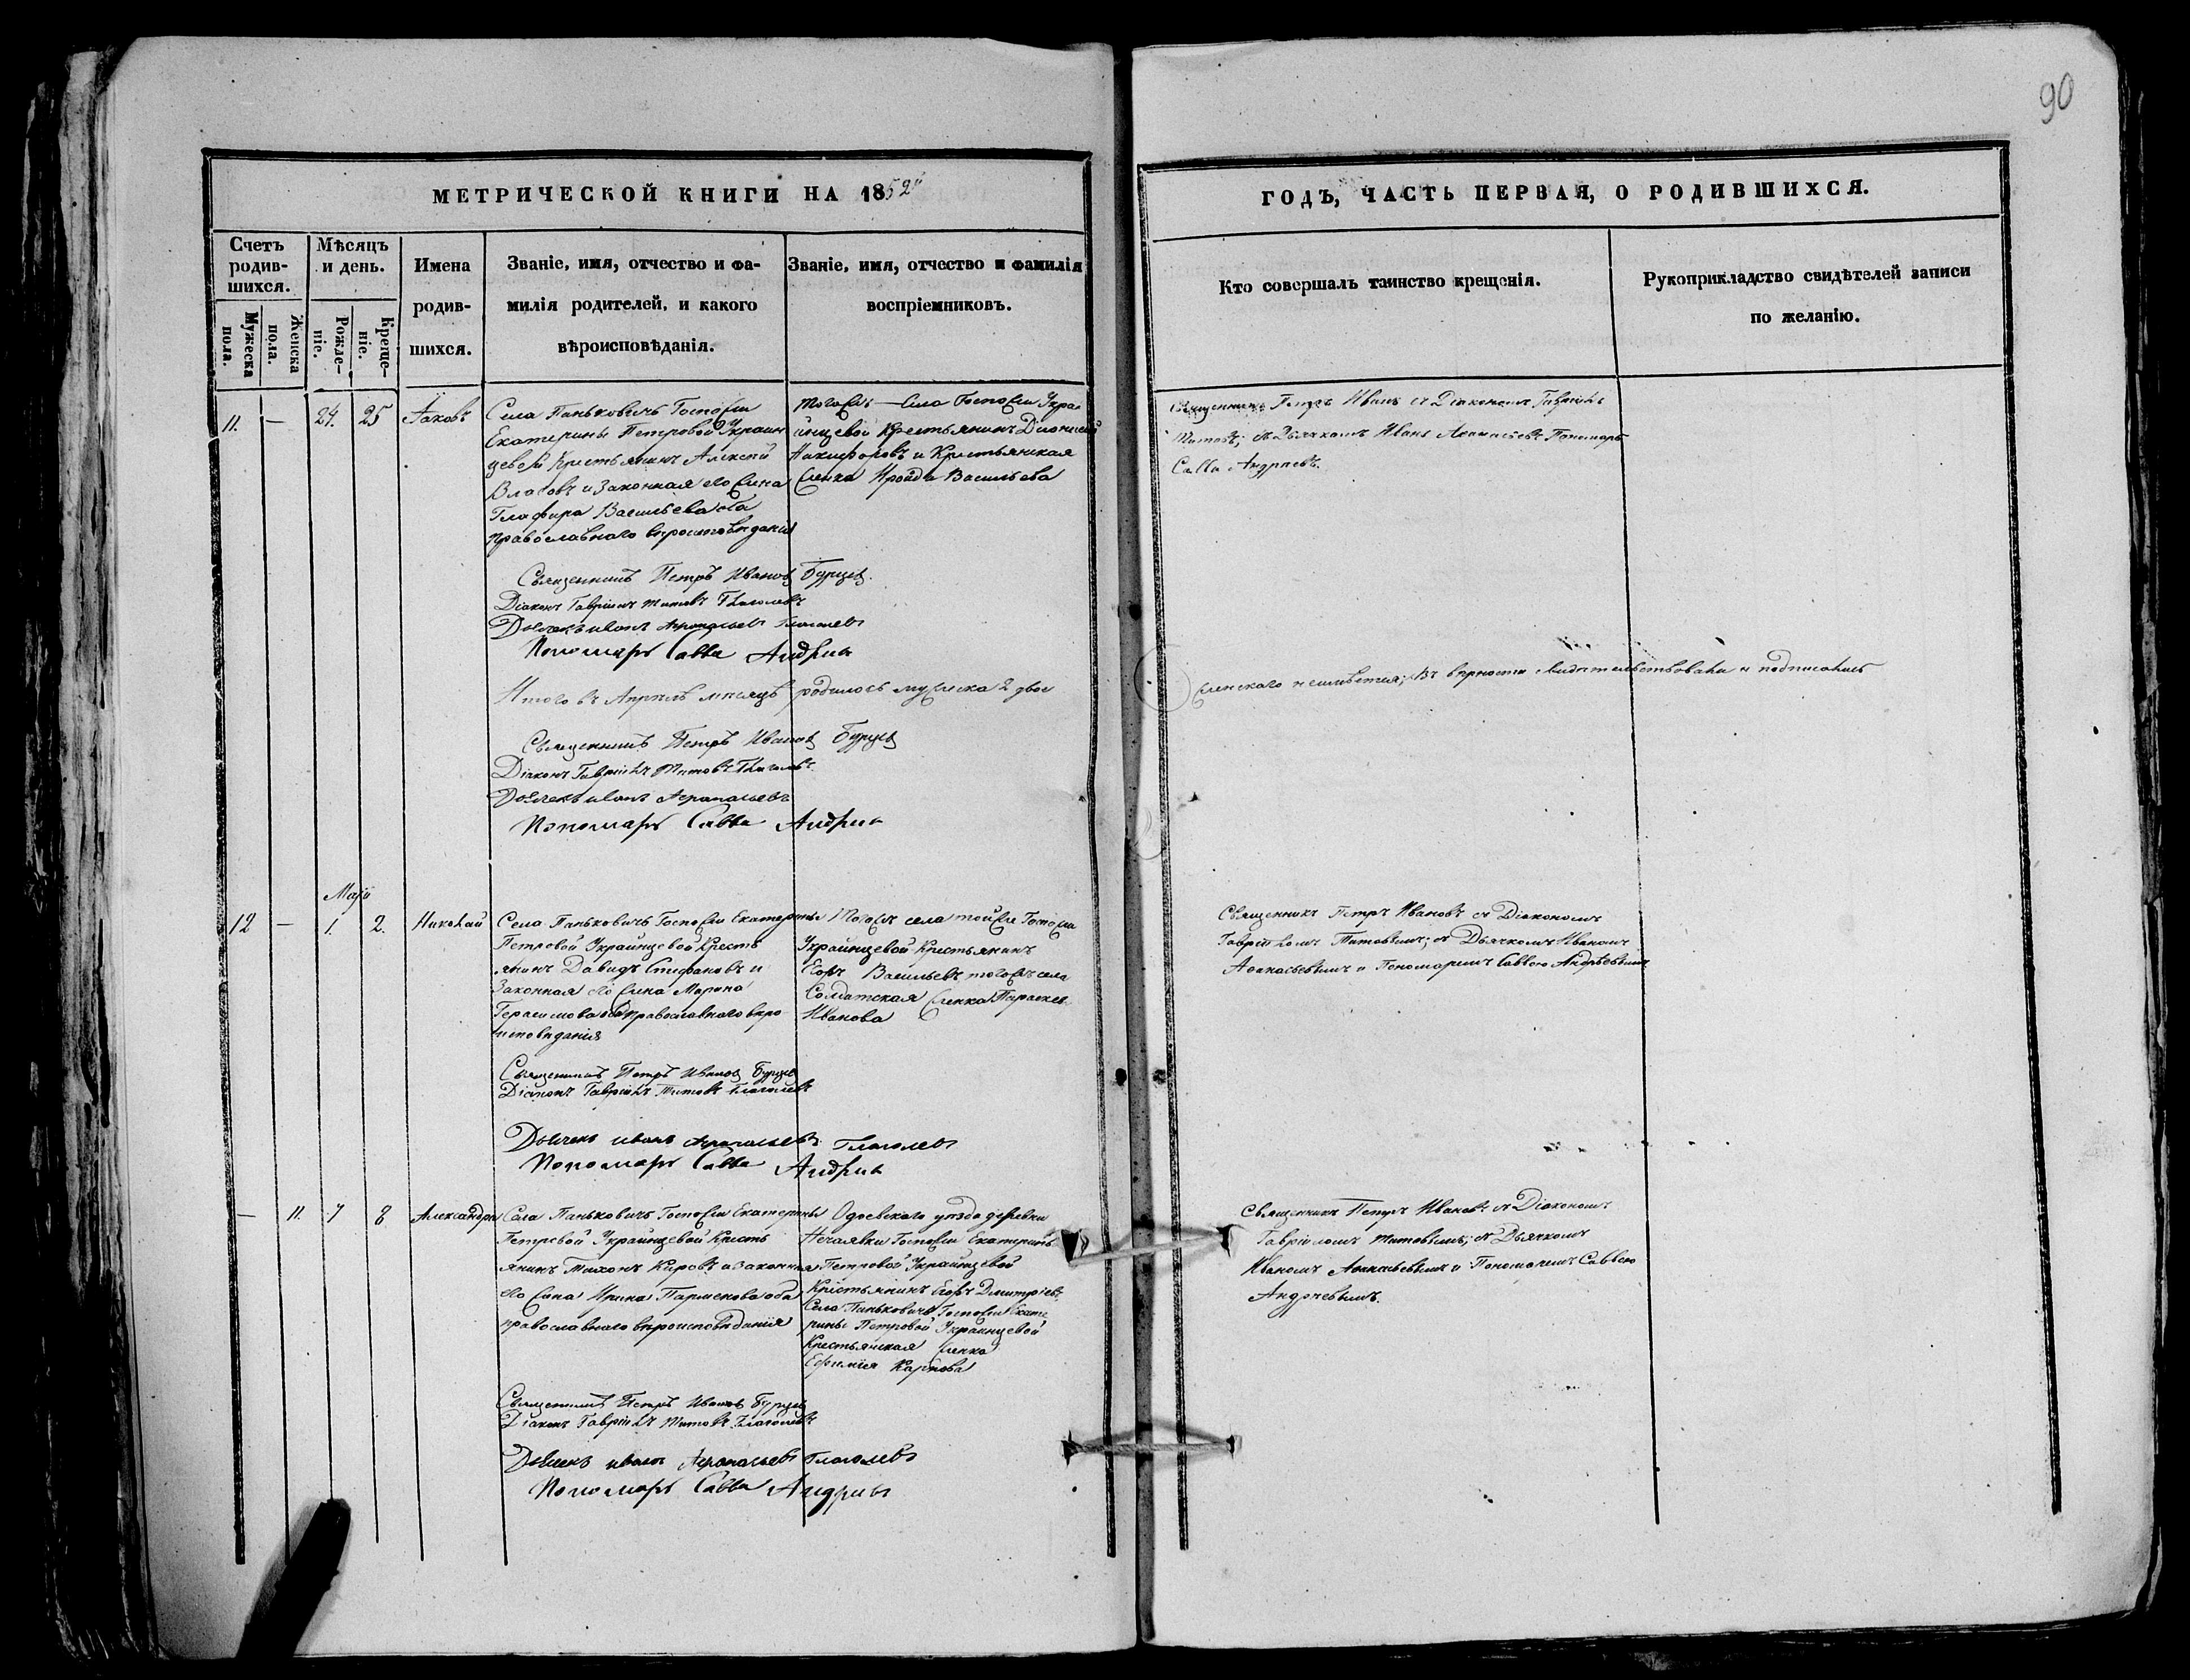 90
МЕТРИЧЕСКОЙ КНИГИ НА 1852й
ГОДЪ, ЧАСТЬ ПЕРВАЯ, О РОДИВШИХСЯ.
Счетъ родив-шихся.
Мужеска пола.
Женска пола.
Мѣсяцъ и день.
Рожде-ніе.
Креще-ніе.
Имена родив-шихся.
Званіе, имя, отчество и фа-
милія родителей, и какого
вѣроисповѣданія.
Званіе, имя, отчество и фамилія
воспріемниковъ.
Кто совершалъ таинство крещенія.
Рукоприкладство свидѣтелей записи
по желанію.
11. — 24. 25 Іаковъ
Села Паньковичь Госпожи
Екатерины Петровой Украин
цевой Крестьянинъ Алексѣй
Власовъ и Законная его жена
Глафира Васильева оба
православнаго вѣроисповѣданія
Тогожъ Села Госпожи Укра
инцевой Крестьянинъ Діонисій
Никифоровъ и Крестьянская
женка Ироида Васильева
Священникъ Петръ Ивановъ съ Діакономъ Гавріилъ
Титовъ; съ Дьячкомъ Иванъ Аѳанасьевъ Пономарь
Савва Андреевъ.
Священникъ Петръ Ивановъ Бурцевъ.
Діаконъ Гавріилъ Титовъ Глаголевъ
Дьячекъ иванъ Афанасьевъ Глаголевъ
Пономарь Савва Андреевъ
Итого въ Апрѣлѣ мѣсяцѣ родилось мужеска 2 двое
женскаго неимѣется; въ вѣрности свидѣтельствовали и подписались
Священникъ Петръ Ивановъ Бурцевъ
Діаконъ Гавріилъ Титовъ Глаголевъ
Дьячекъ иванъ Афанасьевъ
Пономарь Савва Андреевъ
Маій
12 — 1. 2. Николай
Села Паньковичь Госпожи Екатерины
Петровой Украинцевой Кресть
янинъ Давидъ Стефановъ и
Законная его жена Марина
Герасимова оба православнаго вѣро
исповѣданія
Тогожъ села тойже Госпожи
Украинцевой Крестьянинъ
Егоръ Васильевъ тогожъ села
Солдатская женка Параскев.
Иванова
Священникъ Петръ Ивановъ съ Діакономъ
Гавріиломъ Титовымъ; съ Дьячкомъ Иваномъ
Аѳанасьевымъ и Пономаремъ Саввою Андреевымъ
Священникъ Петръ Ивановъ Бурцевъ
Діаконъ Гавріилъ Титовъ Глаголевъ
Дьячекъ иванъ Афанасьевъ Глаголевъ
Пономарь Савва Андреевъ
— 11. 7 8 Александра
Села Паньковичь Госпожи Екатерины
Петровой Украинцевой Кресть
янинъ Тихонъ Карповъ и законная
его жена Ирина Парменова оба
православнаго вѣроисповѣданія
Одоевскаго уѣзда деревни
Нечаявки Госпожи Екатерины
Петровой Украинцевой
Крестьянинъ Егоръ Дмитріевъ.
Села Паньковичь Госпожи Екате
рины Петровой Украинцевой
Крестьянская женка
Ефимія Карпова
Священникъ Петръ Ивановъ съ Діакономъ
Гавріиломъ Титовымъ; съ Дьячкомъ
Иваномъ Аѳанасьевымъ и Пономаремъ Саввою
Андреевымъ.
Священникъ Петръ Ивановъ Бурцевъ
Діаконъ Гавріилъ Титовъ Глаголевъ
Дьячекъ иванъ Афанасьевъ Глаголевъ
Пономарь Савва Андреевъ